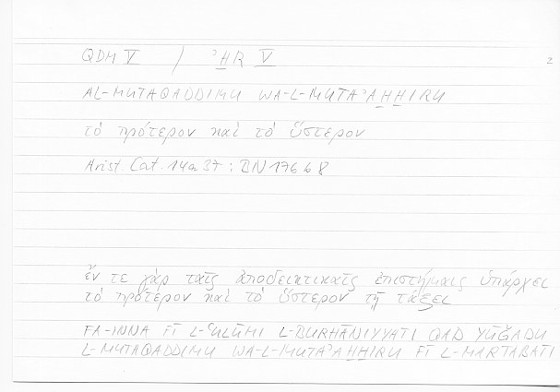 QDM V / ʾH̱R V 2
AL-MUTAQADDIMU WA-L-MUTAʾAH̱H̱IRU
τὸ πρότερον καὶ τὸ ὕστερον
Arist Cat. 14a37 : BN 176 b 8
ἔν τε γὰρ ταῖς ἀποδεικτικαῖς ἐπιστήμαις ὑπάρχει
τὸ πρότερον καὶ τὸ ὕστερον τῇ τάξει
FA-INNA FĪ L-ʿULŪMI L-BURHĀNIYYATI QAD YŪǦADU
L-MUTAQADDIMU WA-L-MUTAʾAH̱H̱IRU FĪ L-MARTABATI